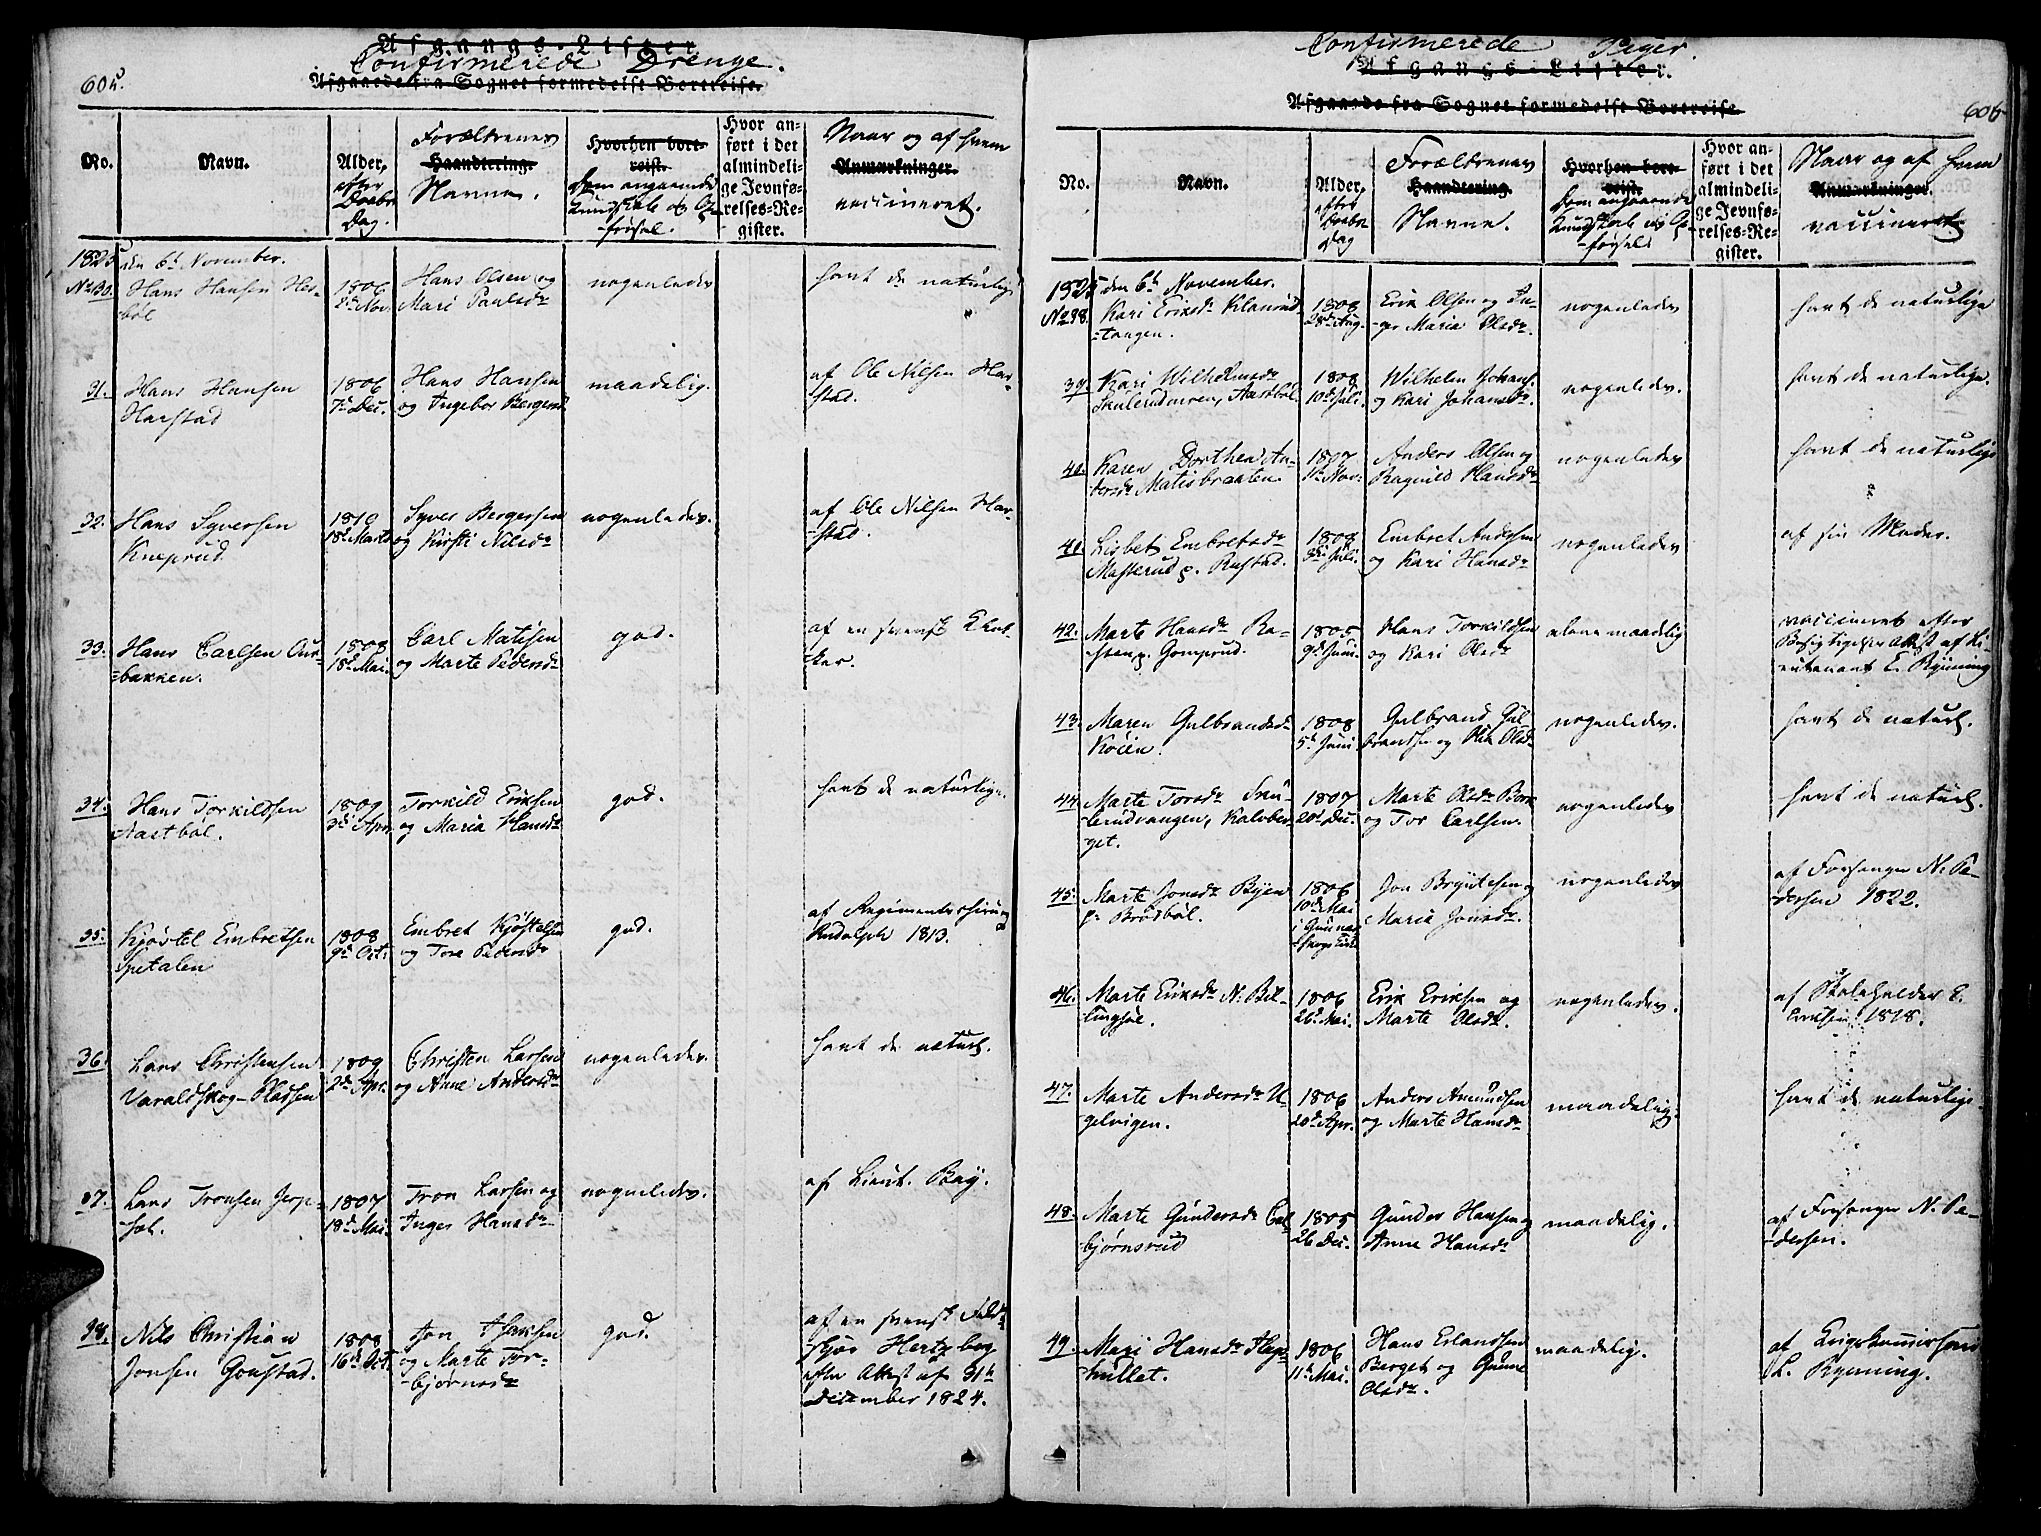 605.
Afgangs-Lister
Confirmerede Drenge.
Afgaaede fra Sognet formedelst Bortreise.
No.
Navn.
Alder,
efter
Daabs
Dag.
Forældrenes
Haandtering.
Navne.
Hvorhen bort-
reist.
Dom angaaende
Kundskab og Op-
førsel.
Hvor an-
ført i det
almindeli-
ge Jevnfø-
relses-Re-
gister.
Naar og af hvem
Anmærkninger.
vaccineret.
1825 den 6te November.
No 30. Hans Hansen Hes-
bøl
1806
2d Nov.
Hans Olsen og
Mari Paulsdr
nogenledes
havt de naturlige
31. Hans Hansen
Harstad
1806
7d Dec.
Hans Hansen
og Ingebor Bergersd
maadelig.
af Ole Nilsen Har-
stad.
32. Hans Syversen
Kneprud
1810
18d Marts
Syver Bergersen
og Kirsti Nilsdr
nogenledes.
af Ole Nilsen Har-
stad.
33. Hans Carlsen Aur-
bakken.
1808
18d Mai.
Carl Matisen
og Marte Pedersdr
god.
af en svensk
34. Hans Torkildsen
Aastbøl.
1809
3d Apr.
Torkild Eriksen
og Maria Hansdr
god.
havt de naturlige.
35. Kjøstel Embretsen
Spetalen
1808
9d Oct.
Embret Kjøstelsen
og Tore Pedersdr
god.
af Regimentschirurg
Rudolph 1813.
36. Lars Christensen
Varaldskog-Pladsen
1809
2d Apr.
Christen Larsen
og Anne Andersdr
nogenledes.
havt de naturl.
37. Lars Tronsen Jerp-
set.
1807
18d Mai.
Tron Larsen og
Inger Hansdr
nogenledes.
af Lieut. Bay.
38. Nils Christian
Jonsen Goustad.
1808
16d Oct.
Jon
og Marte Tor-
bjørnsdr
god.
af en svensk Feldt-
skjær Hertzberg
efter Attest af 31te
December 1824.
Confirmerede Piger.
Afgangs-Lister.
Afgaaede fra Sognet formedelst Bortreise
606
No.
Navn.
Alder,
efter
Daabs
Dag
Forældrenes
Haandtering.
Navne.
Hvorhen bort-
reist.
Dom angaaende
Kundskab og Op-
førsel
Hvor an-
ført i det
almindeli-
ge Jevnfø-
relses-Re-
gister.
Naar og af hvem
Anmærkninger.
vaccineret.
1825 den 6te November.
No 38. Kari Eriksdr Klanrud-
tangen.
1808
28d Aug.
Erik Olsen og In-
ger Maria Olsdr.
nogenledes
havt de naturlige
39. Kari Wilhelmsdr
Skulerudmoen, Aastbøl.
1808
10d Juli.
Wilhelm Johans.
og Kari Johansdr.
nogenledes.
havt de naturlige.
40. Karen Dorthea An-
dersdr Matisbraaten.
1807
1d Nov.
Anders Olsen og
Ragnild Hansdr
nogenledes
havt de naturlige
41. Lisbet Embretsdr
Masterud p. Rustad.
1808
3d Juli.
Embret Andersen
og Kari Hansdr
nogenledes
af sin Moder.
42. Marte Hansdr Ra-
sten p. Gomprud.
1805
9d Juni.
Hans Torkildsen
og Kari Olsdr
alene maadelig
vaccineret efter
Besigtigelses Attest af Li-
eutenant E. Rynning
43. Maren Gulbrandsdr
Køien.
1808
5d Juni.
Gulbrand Gul-
brandsen og Olia Olsdr
nogenledes.
havt de naturl.
44. Marte Torsdr Sku-
lerudvangen, Kalvber-
get.
1807
20d Dec.
Marte Olsdr Berk
og Tor Carlsen.
nogenledes
havt de naturl.
45. Marte Jonsdr Byen
p. Brødbøl.
1806
10d Mai
i Grue
Jon Bryntesen og
Maria Jonsdr.
nogenledes
af Forsanger N. Pe-
dersen 1822.
46. Marte Eriksdr N. Bel-
lingsøe.
1806
26d Mai.
Erik Eriksen og
Marte Olsdr.
nogenledes.
af Skoleholder E.
Eriksen 1818.
47. Marte Andersdr U-
gelvigen.
1806
20d Apr.
Anders Amundsen
og Marte Hansdr
maadelig.
havt de naturlige.
48. Marte Gundersdr Col-
bjørnsrud
1805
26 Dec.
Gunder Hansen og
Anne Hansdr
maadelig.
af Forsanger N. Pe-
dersen.
49. Mari Hansdr
hullet.
1806
11d Mai.
Hans Erlandsen
Berget og Gunne
Olsdr.
maadelig.
af
L. Rynning.